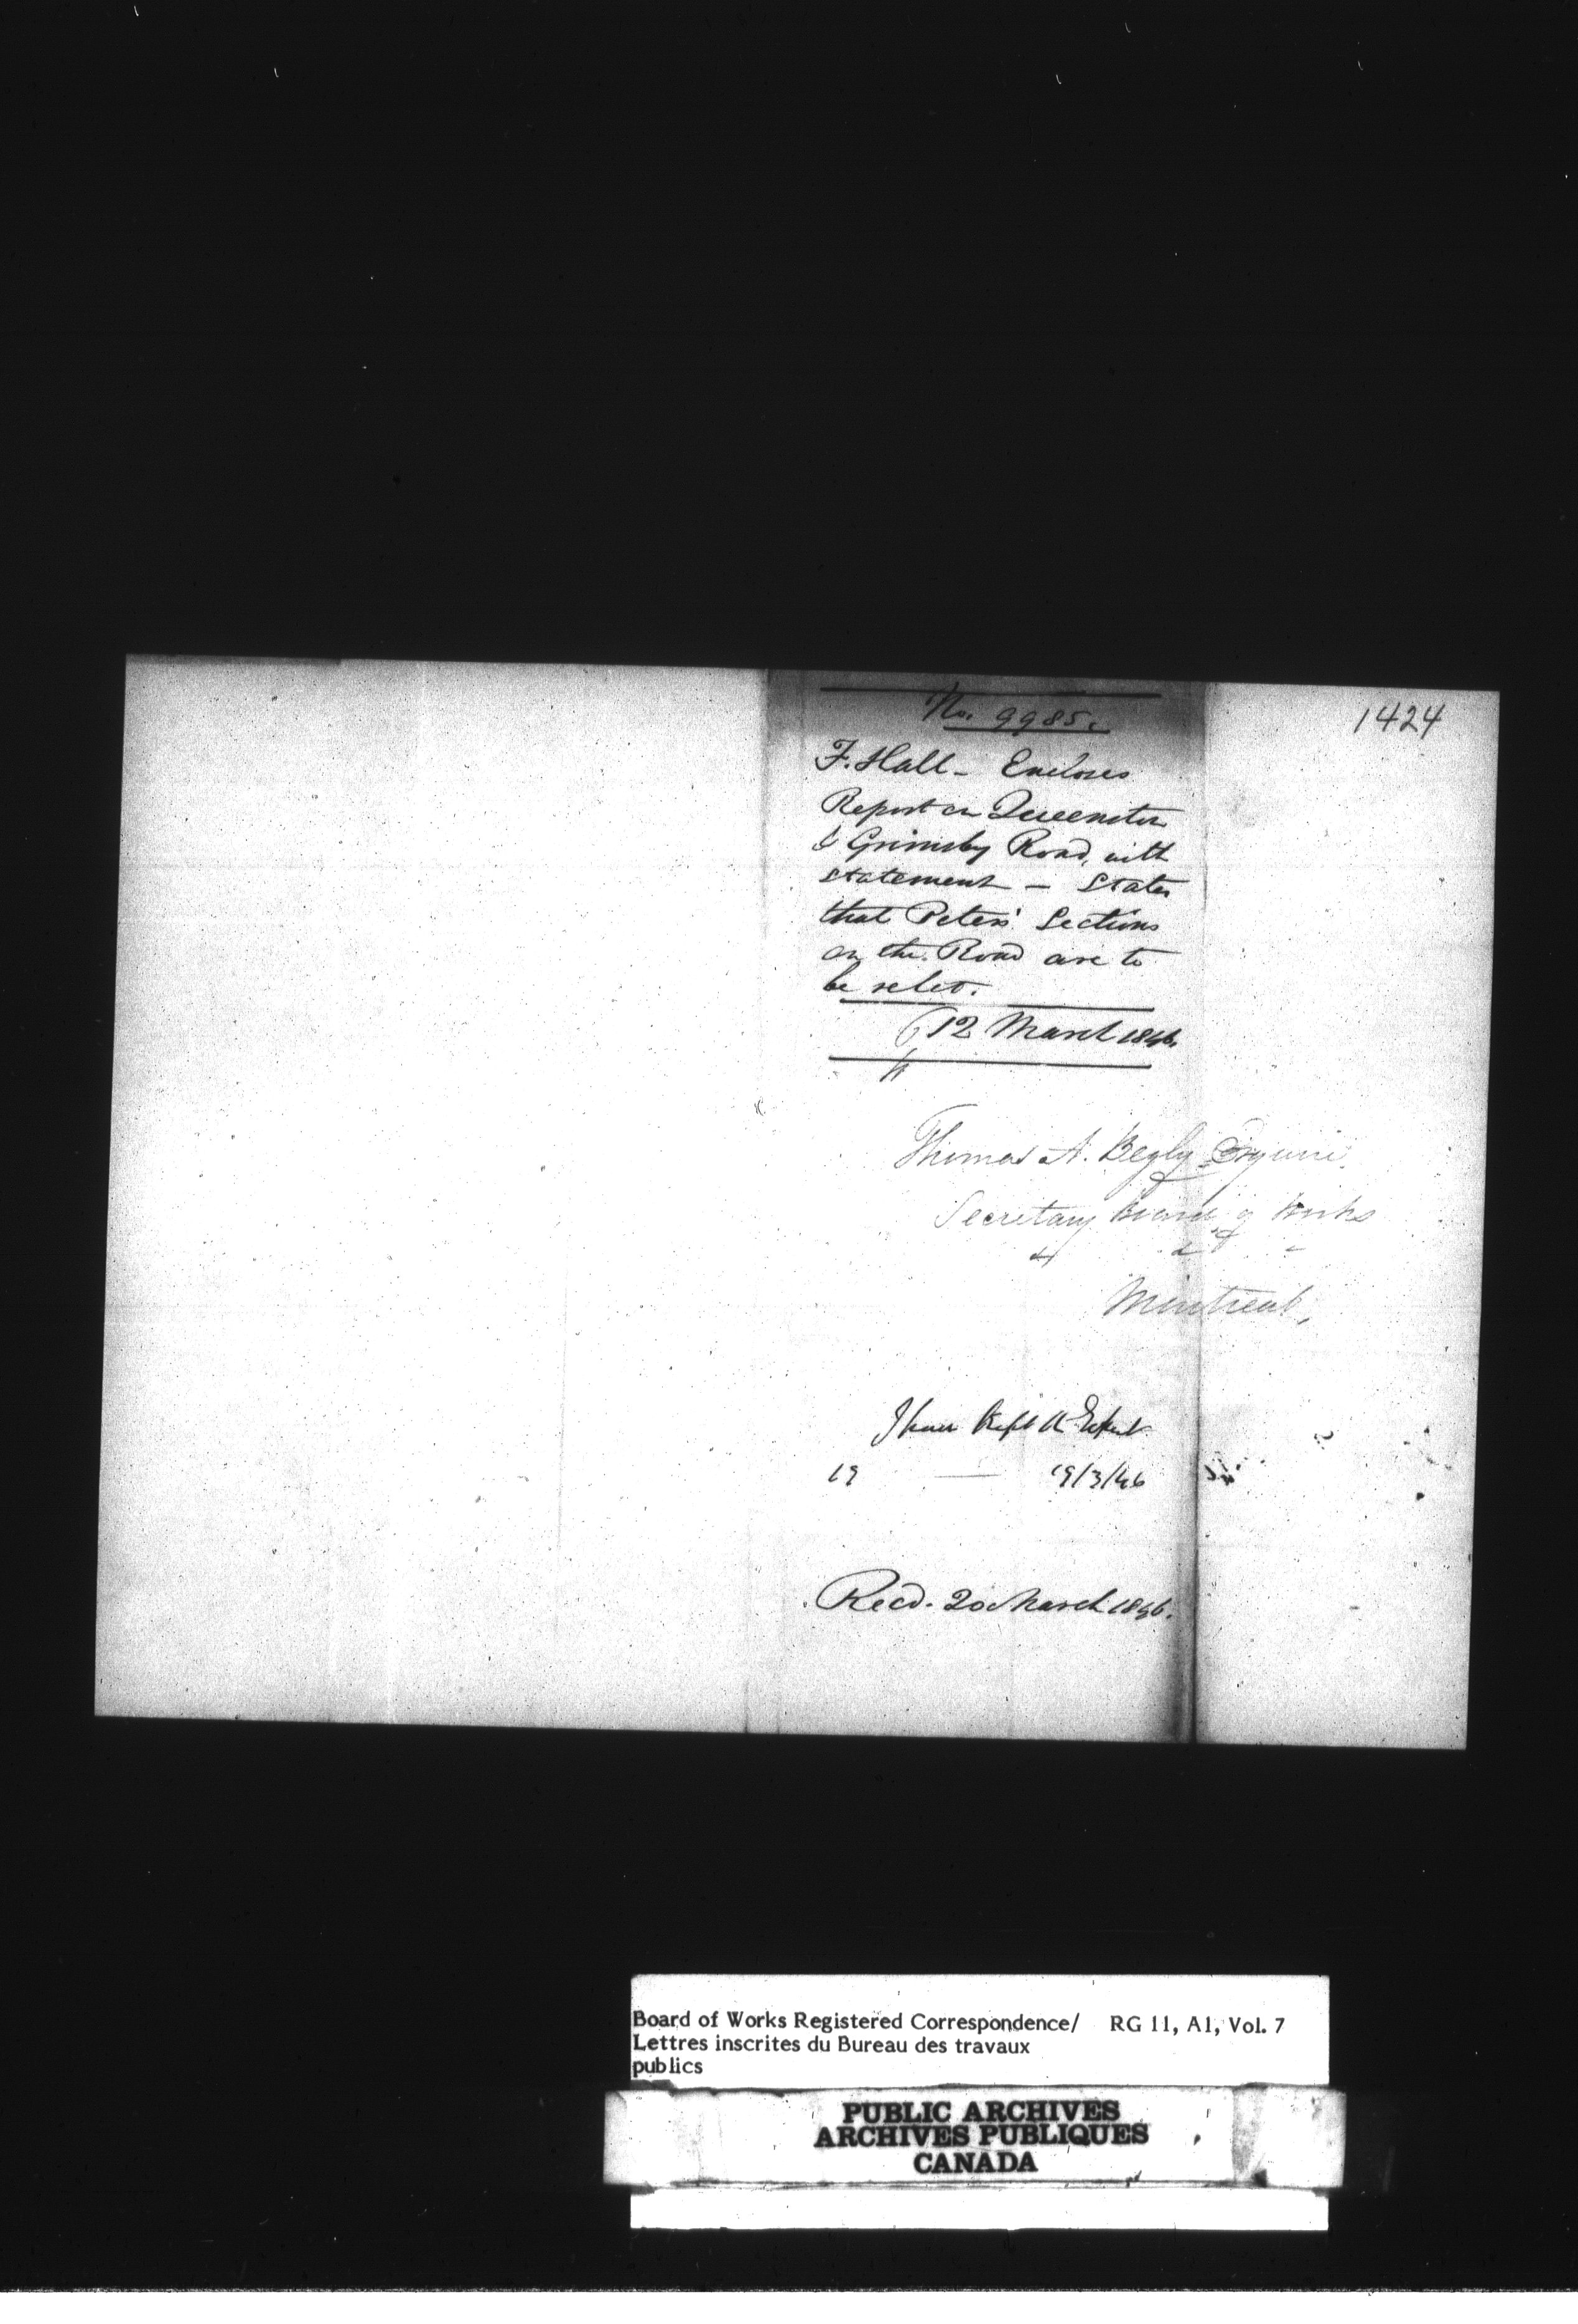 1424
No. 9985.
F. Hall - Encloses
Report on Queenston
& Grimsby Road, with
statement - States
that Peters' Sections
on the Road are to
be relet.
12 March 1846.
Thomas A. Begly Esquire
Secretary Board of Works
Montreal,
I have kept
19 — 19/3/46
Recd. 20 March 1846.
Board of Works Registered Correspondence/ RG 11, A1, Vol. 7
Lettres inscrites du Bureau des travaux
publics
PUBLIC ARCHIVES
ARCHIVES PUBLIQUES
CANADA